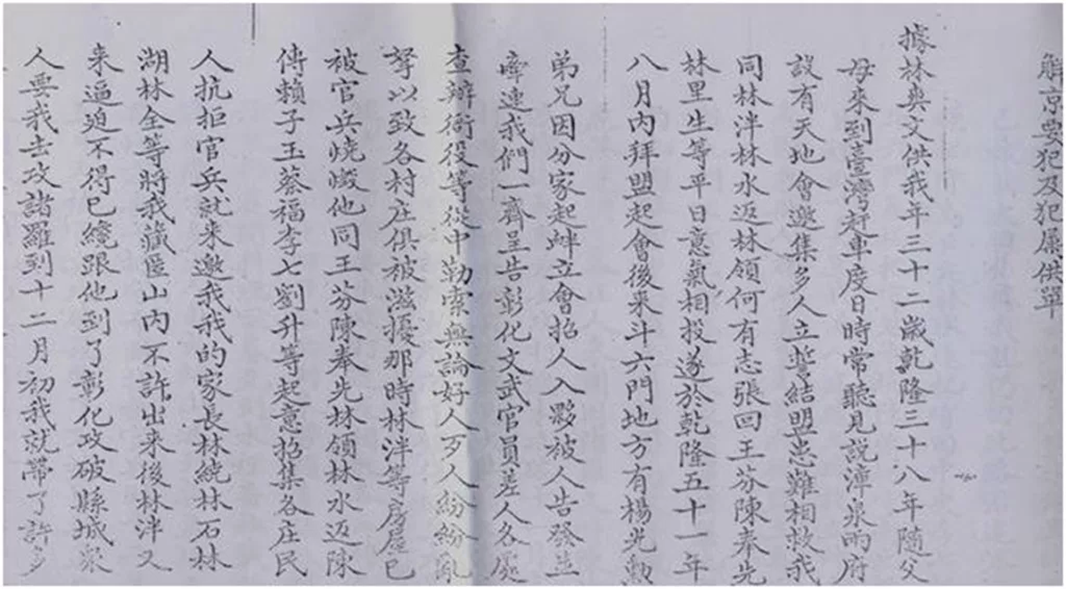 解京要犯及犯屬供單
據林爽文供我年三十二歲乾隆三十八年隨父
母來到臺灣赶車度日時常聽見說漳泉兩府
設有天地會邀集多人立誓結盟患難相救我
同林泮林水返林領何有志張回王芬陳奉先
林里生等平日意氣相投遂於乾隆五十一年
八月內拜盟起會後来斗六門地方有楊光勲
弟兄因分家起衅立會招人入夥被人告發並
牽連我們一齊呈告彰化文武官員差人各處
查辦衙役等從中勒索無論好人歹人紛紛亂
拏以致各村庄俱被滋擾那時林泮等房屋已
被官兵燒燬他同王芬陳奉先林領林水返陳
傳賴子玉蔡福李七劉升等起意招集各庄民
人抗拒官兵就来邀我我的家長林繞林石林
湖林全等將我藏匿山內不許出来後林泮又
来逼迫不得已纔跟他到了彰化攻破縣城衆
人要我去攻諸羅到十二月初我就帶了許多